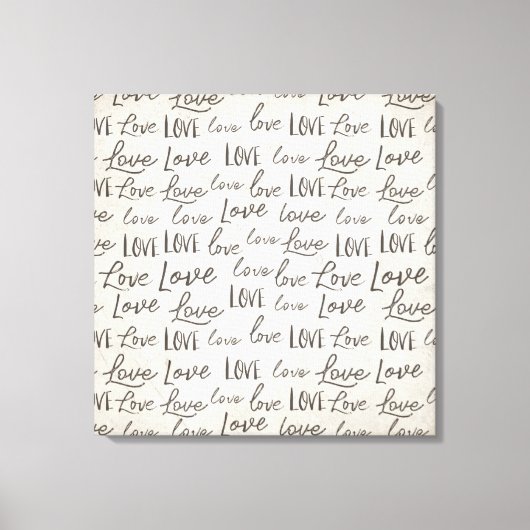 love Love love love Love
LOVE Love LOVE love love LOVE Love LOVE
Love Love LOVE love Love Love
LOVE Love Love love love LOVE Love Love
love love Love love love love Love
LOVE LOVE love love Love LOVE LOVE love
Love Love love love Love Love
Love Love LOVE love Love Love
LOVE Love LOVE love love LOVE Love LOVE
Love Love LOVE love Love Love
LOVE Love Love love love LOVE Love Love
love love Love love love love Love